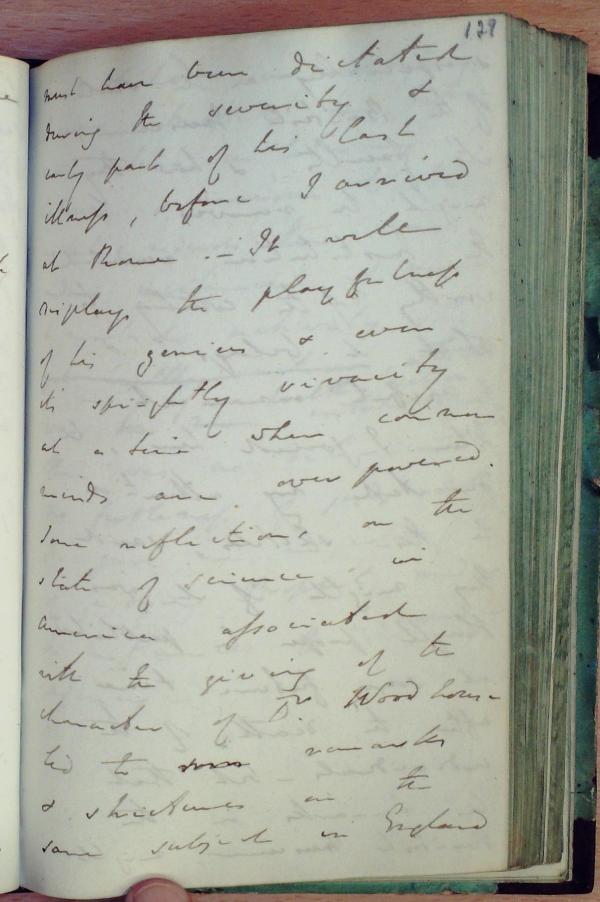 129
must have been dictated
during the severity &
early part of his last
illness, before I arrived
at Rome .- It will
display the playfulness
of his genius & even
its sprightly vivacity
at a time when common
minds are over powered.
Some reflections on the
state of science in
America associated
with the giving of the
character of Dr Woodhouse
led to some remarks
& strictures on the
same subject in England